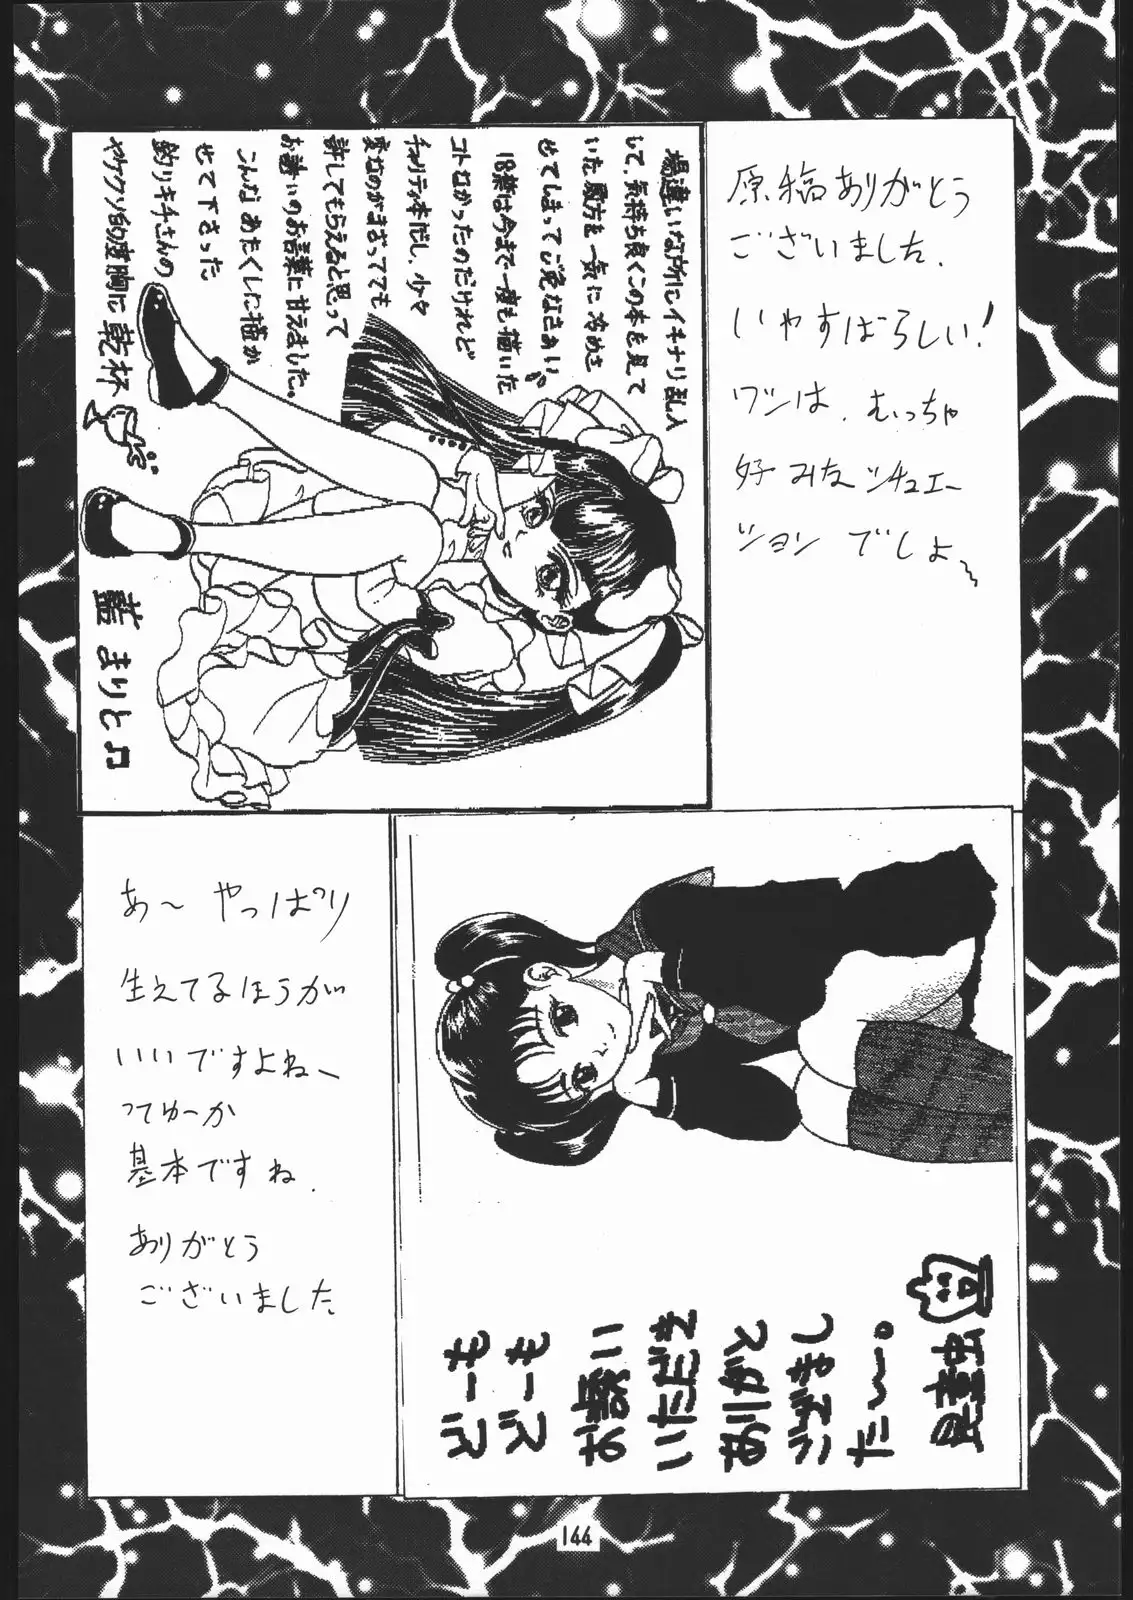 原稿ありがとう
ございました.
いやすばらしい!
ワシは、むっちゃ
好みなシチュエー
ションでしょ〜
場違いな所にイキナリ乱入
して、気持ち良くこの本を見て
いた殿方を一気に冷めさ
せてしまってご免なさぁい。
18禁は今まで一度も描いた
コトなかったのだけれど
チャリティ本だし、少々
変なのがまざってても
許してもらえると思って
お誘いのお言葉に甘えました。
こんなあたくしに描か
せて下さった
釣りキチさんの
ヤケクソ的度胸に乾杯
藍まりと♫
あ〜やっぱり
生えてるほうが
いいですよねー
ってゆーか
基本ですね.
ありがとう
ございました.
どーも
どーも
お誘い
いただき
ありがと
ござまし
た〜。
見童虫
144